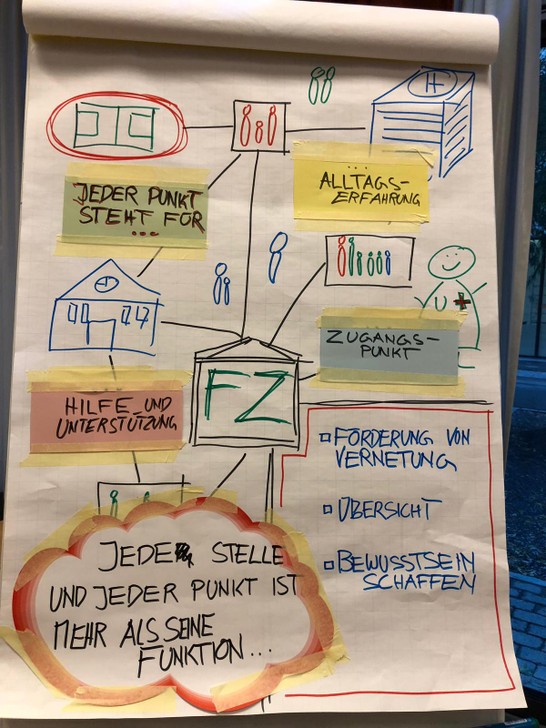 H
JEDER PUNKT
STEHT FÜR
...
...
ALLTAGS-
ERFAHRUNG
U
ZUGANGS-
PUNKT
FZ
HILFE UND
UNTERSTÜTZUNG
□ FÖRDERUNG VON
VERNETUNG
□ ÜBERSICHT
□ BEWUSSTSEIN
SCHAFFEN
JEDE STELLE
UND JEDER PUNKT IST
MEHR ALS SEINE
FUNKTION...